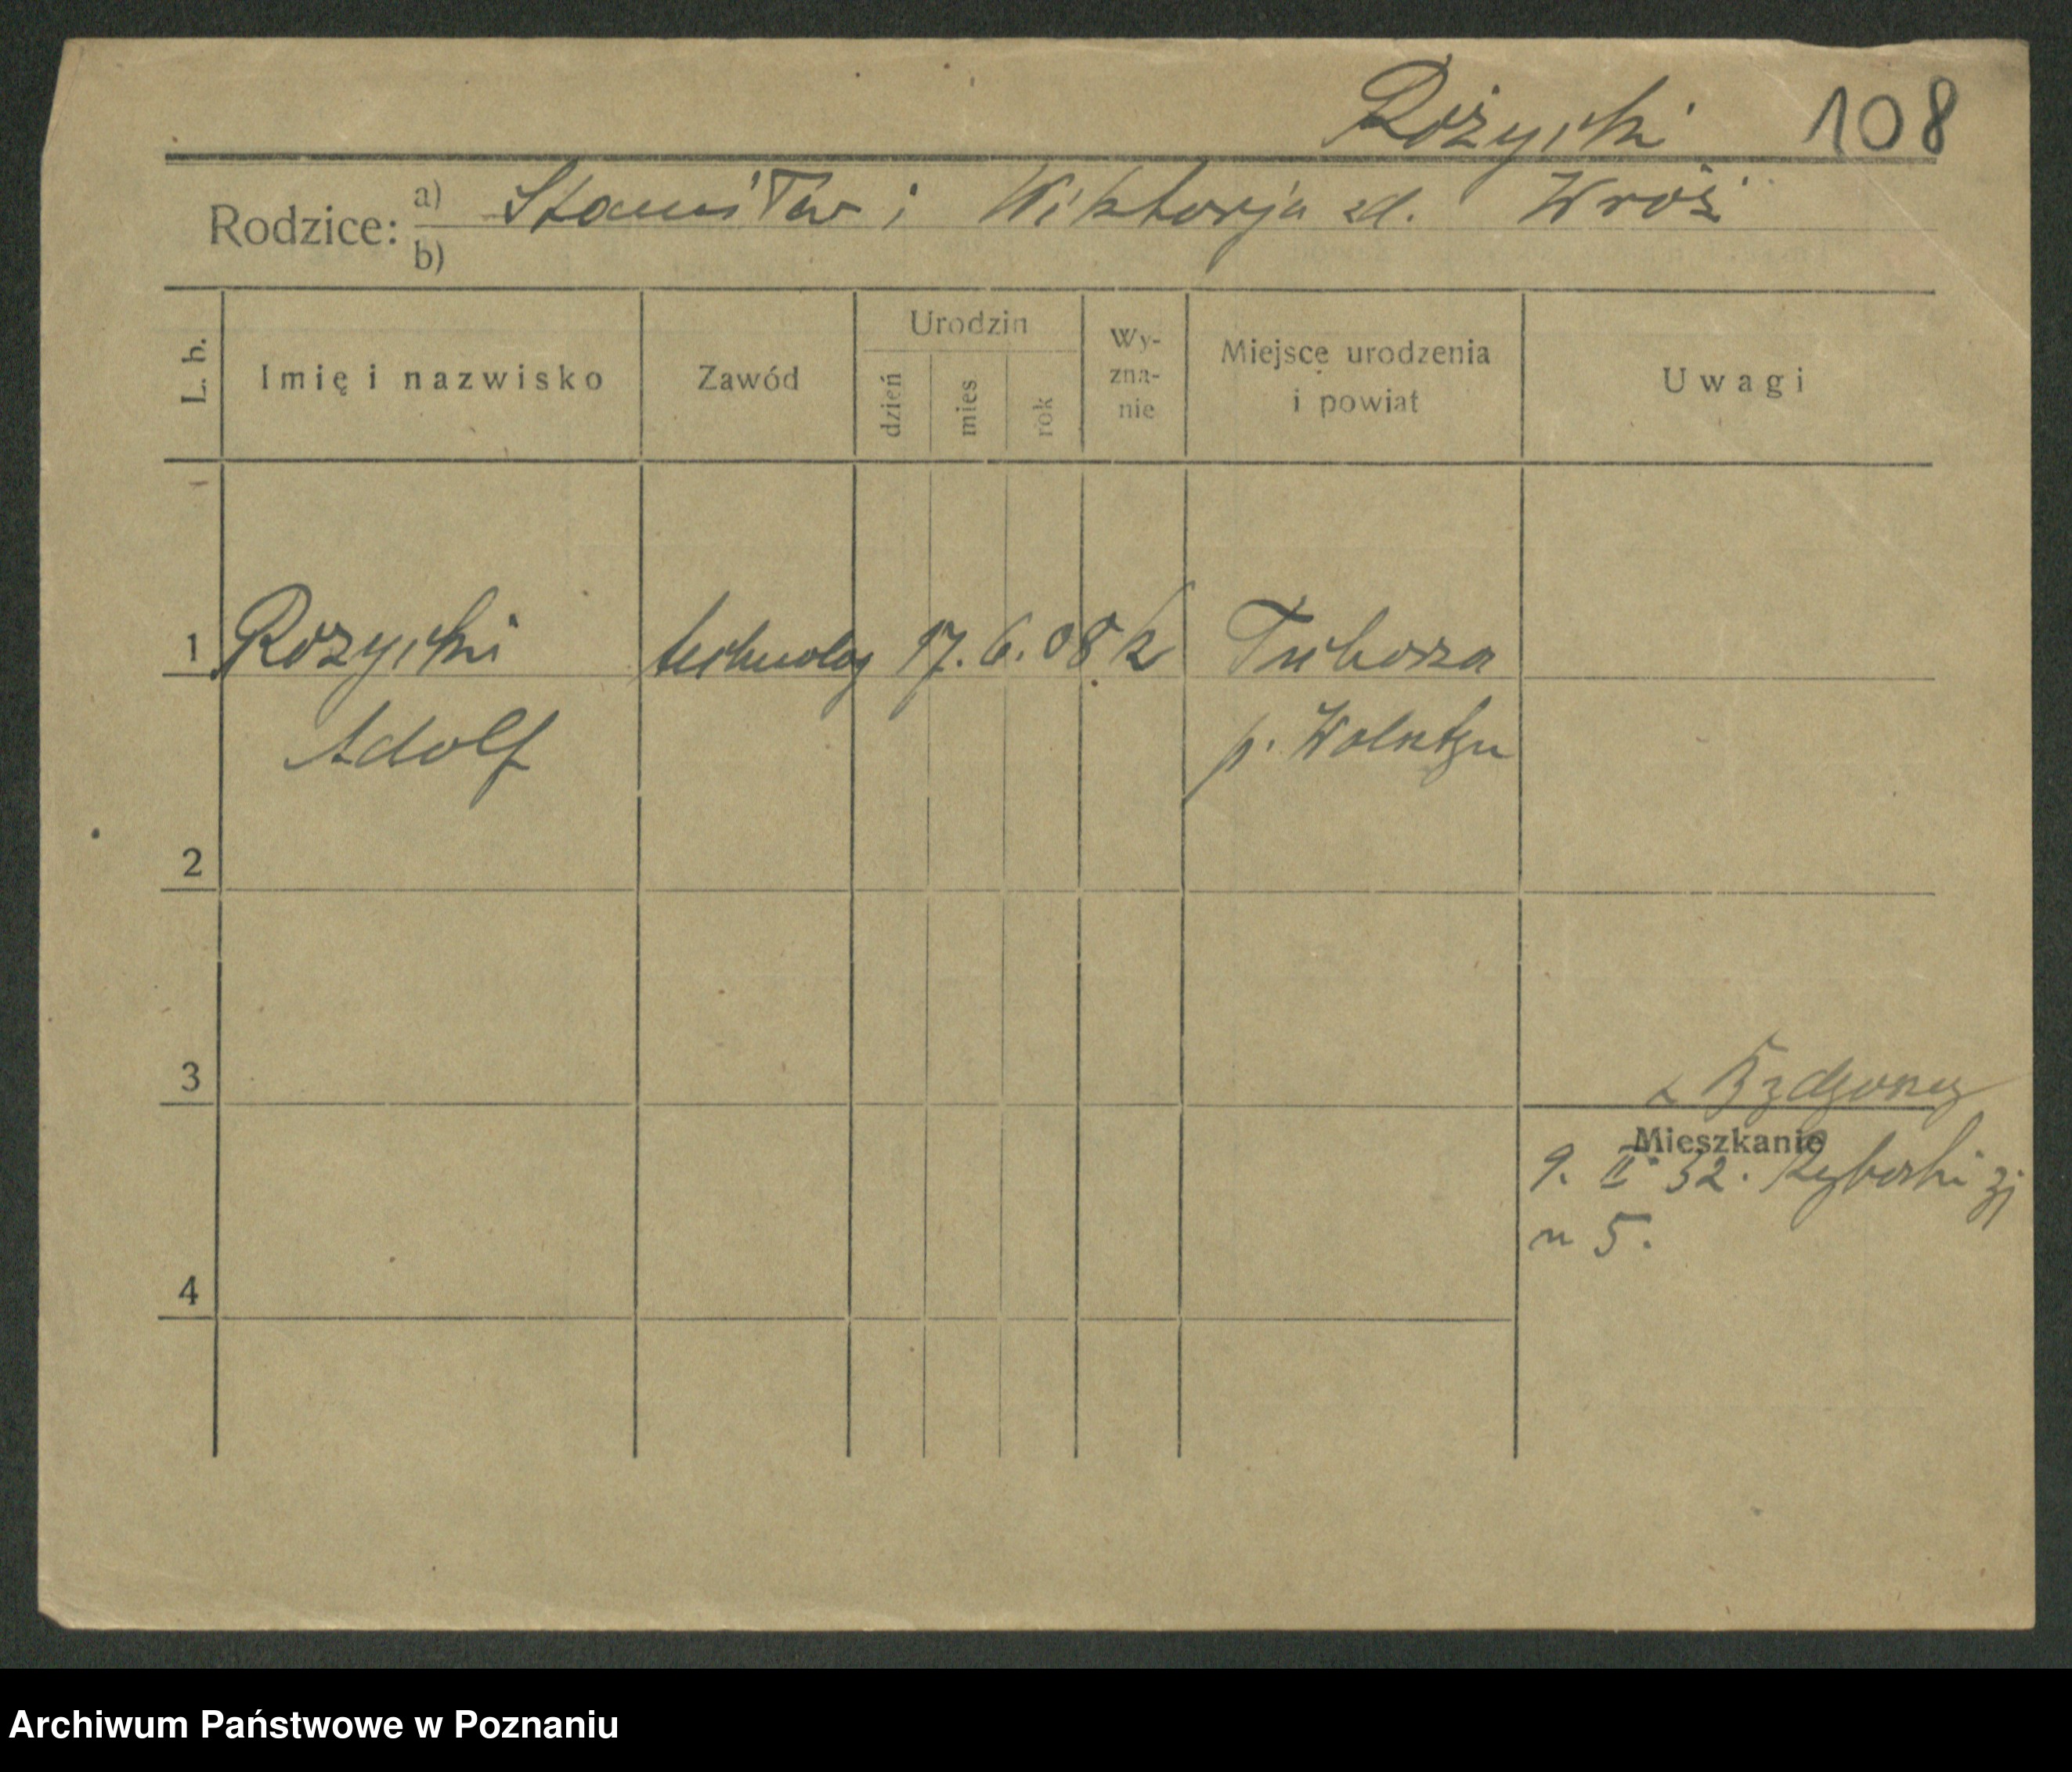 Różycki 108
Rodzice: a) Stanisław i Wiktorja zd. Wróż
b)
L. b. Imię i nazwisko Zawód Urodzin dzień mies rok Wy-zna-nie Miejsce urodzenia i powiat Uwagi
1 Rozycki technolog 17. 6. 08 k
Adolf p.
2
3
z Bydgoszczy
Mieszkanie
9. II 32. Rybaki
5.
4
Archiwum Państwowe w Poznaniu